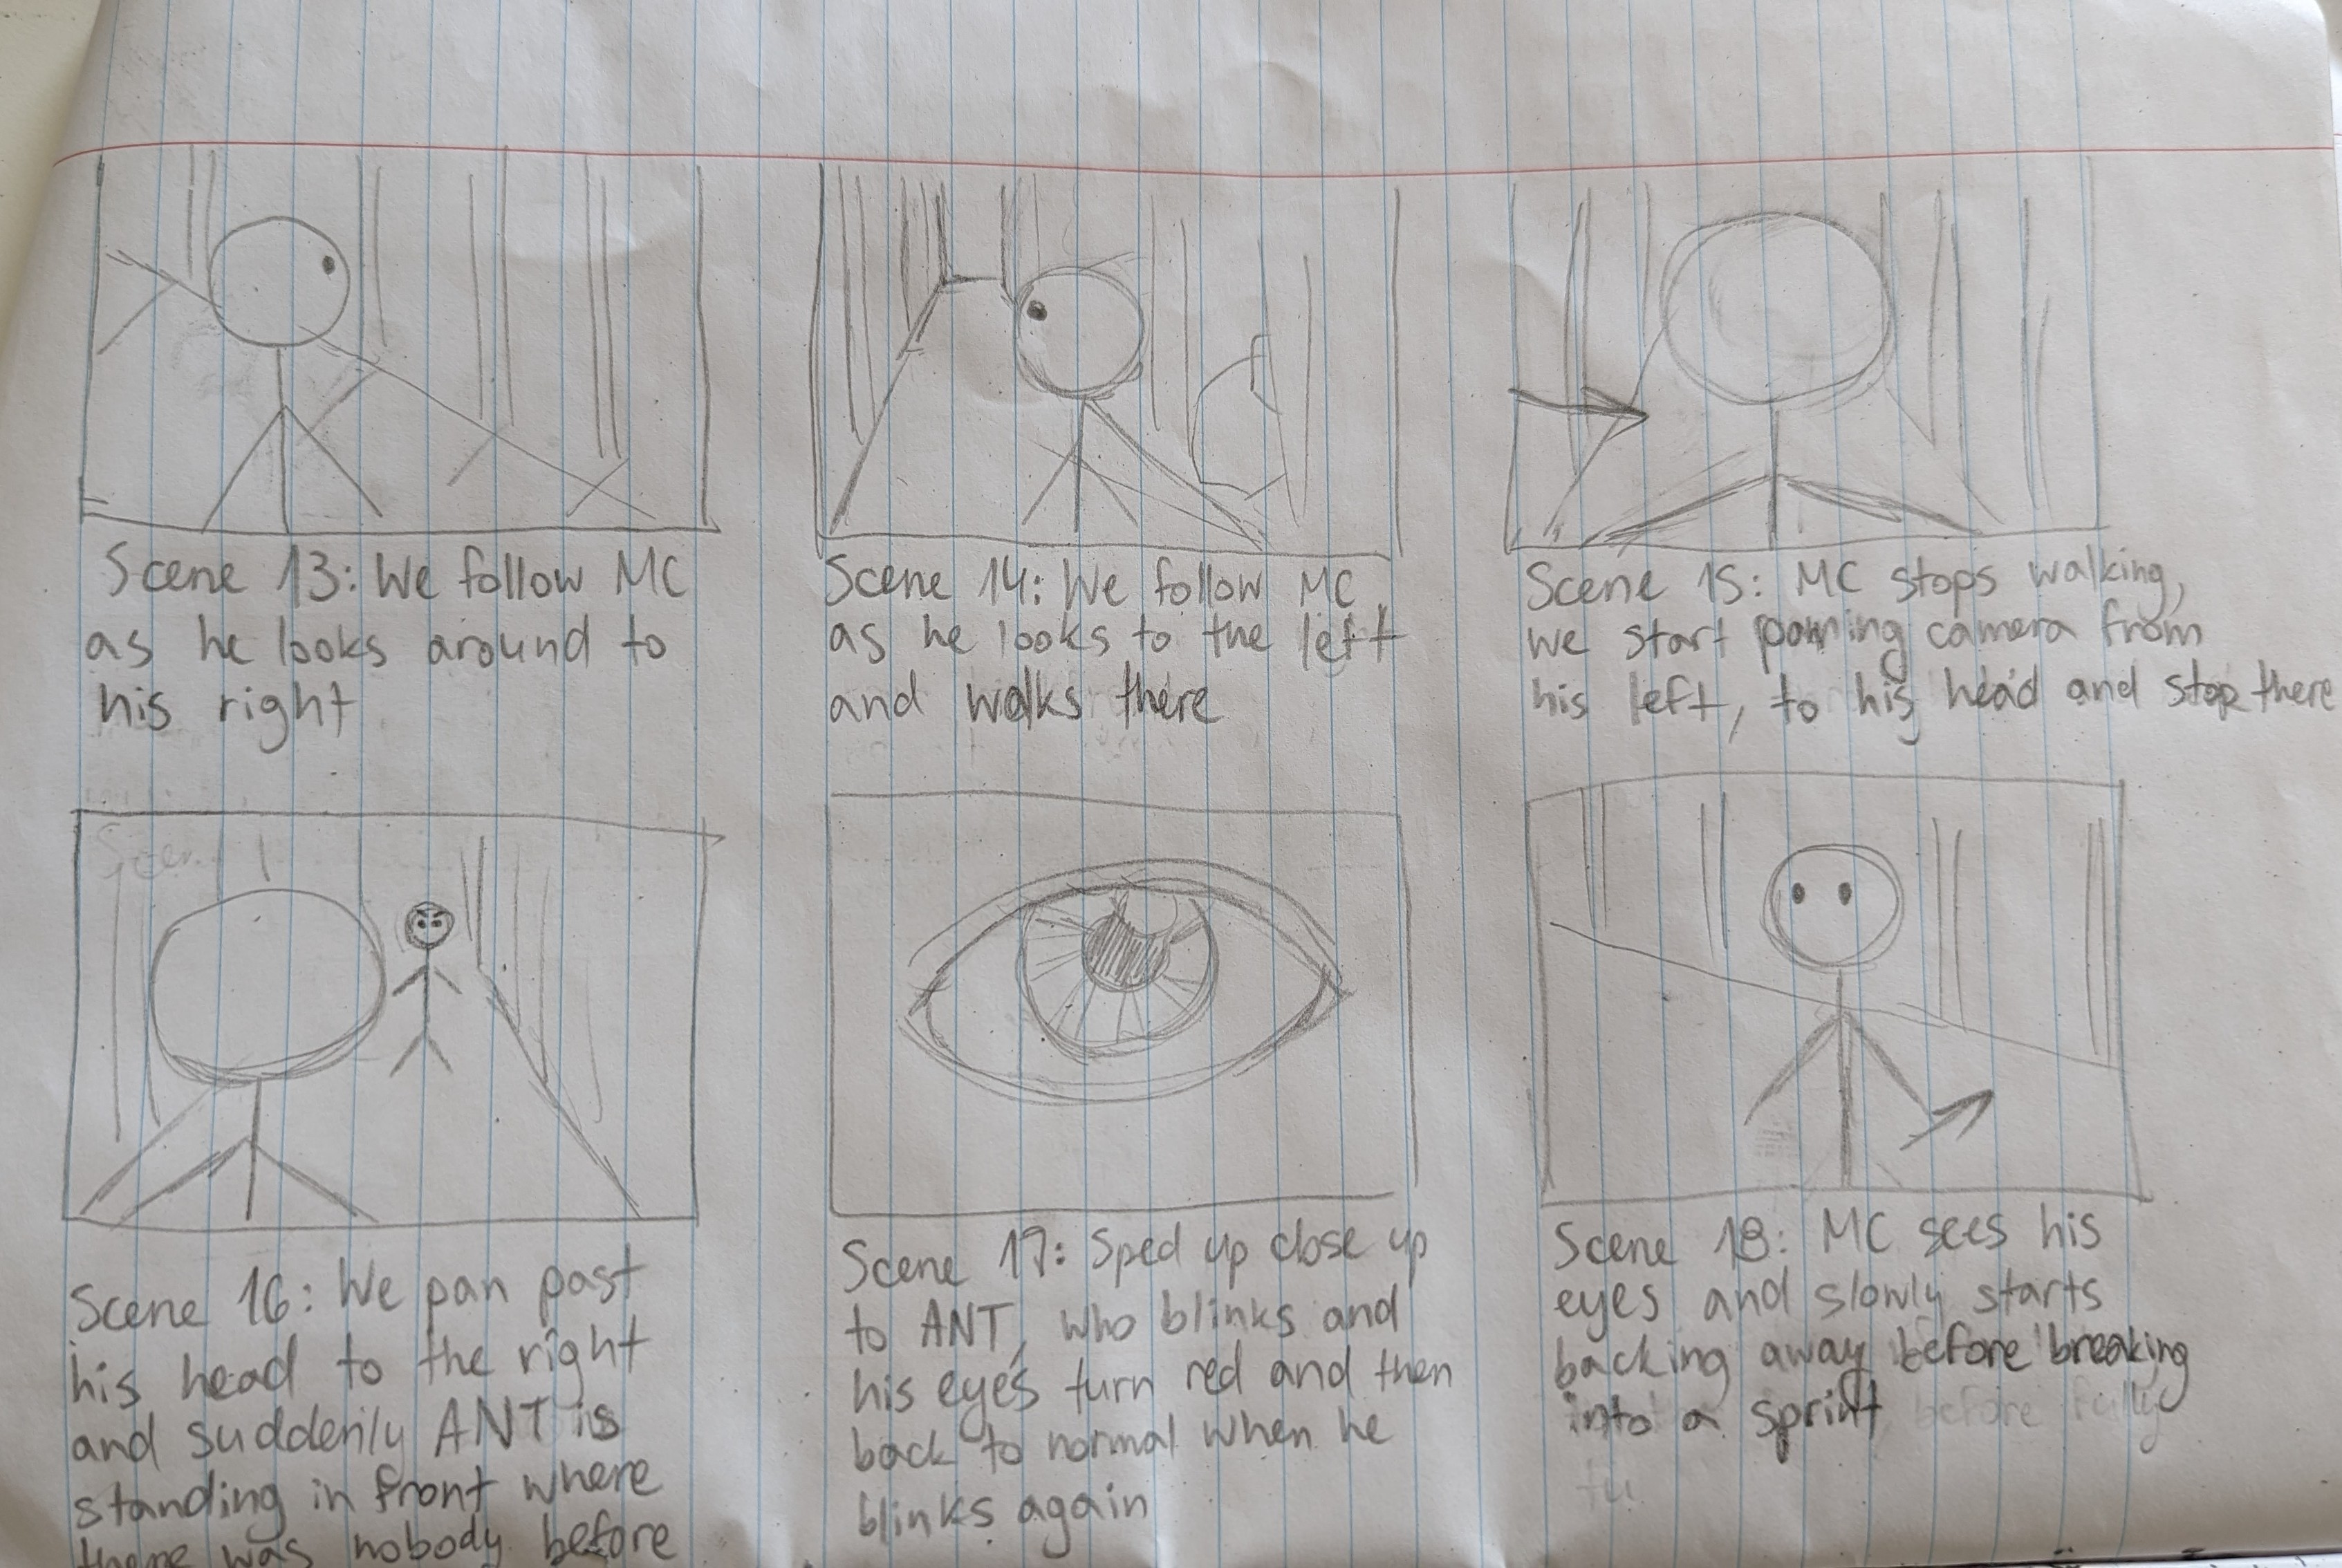 Scene 13: We follow MC
as he looks around to
his right
Scene 14: We follow MC
as he looks to the left
and walks there
Scene 15: MC stops walking,
we start panning camera from
his left, to his head and stop there
Scen
Scene 16: We pan past
his head to the right
and suddenly ANT is
standing in front where
there was nobody before
Scene 17: Sped up close up
to ANT, who blinks and
his eyes turn red and then
back to normal when he
blinks again
Scene 18: MC sees his
eyes and slowly starts
backing away before breaking
into a sprint before fully
tu